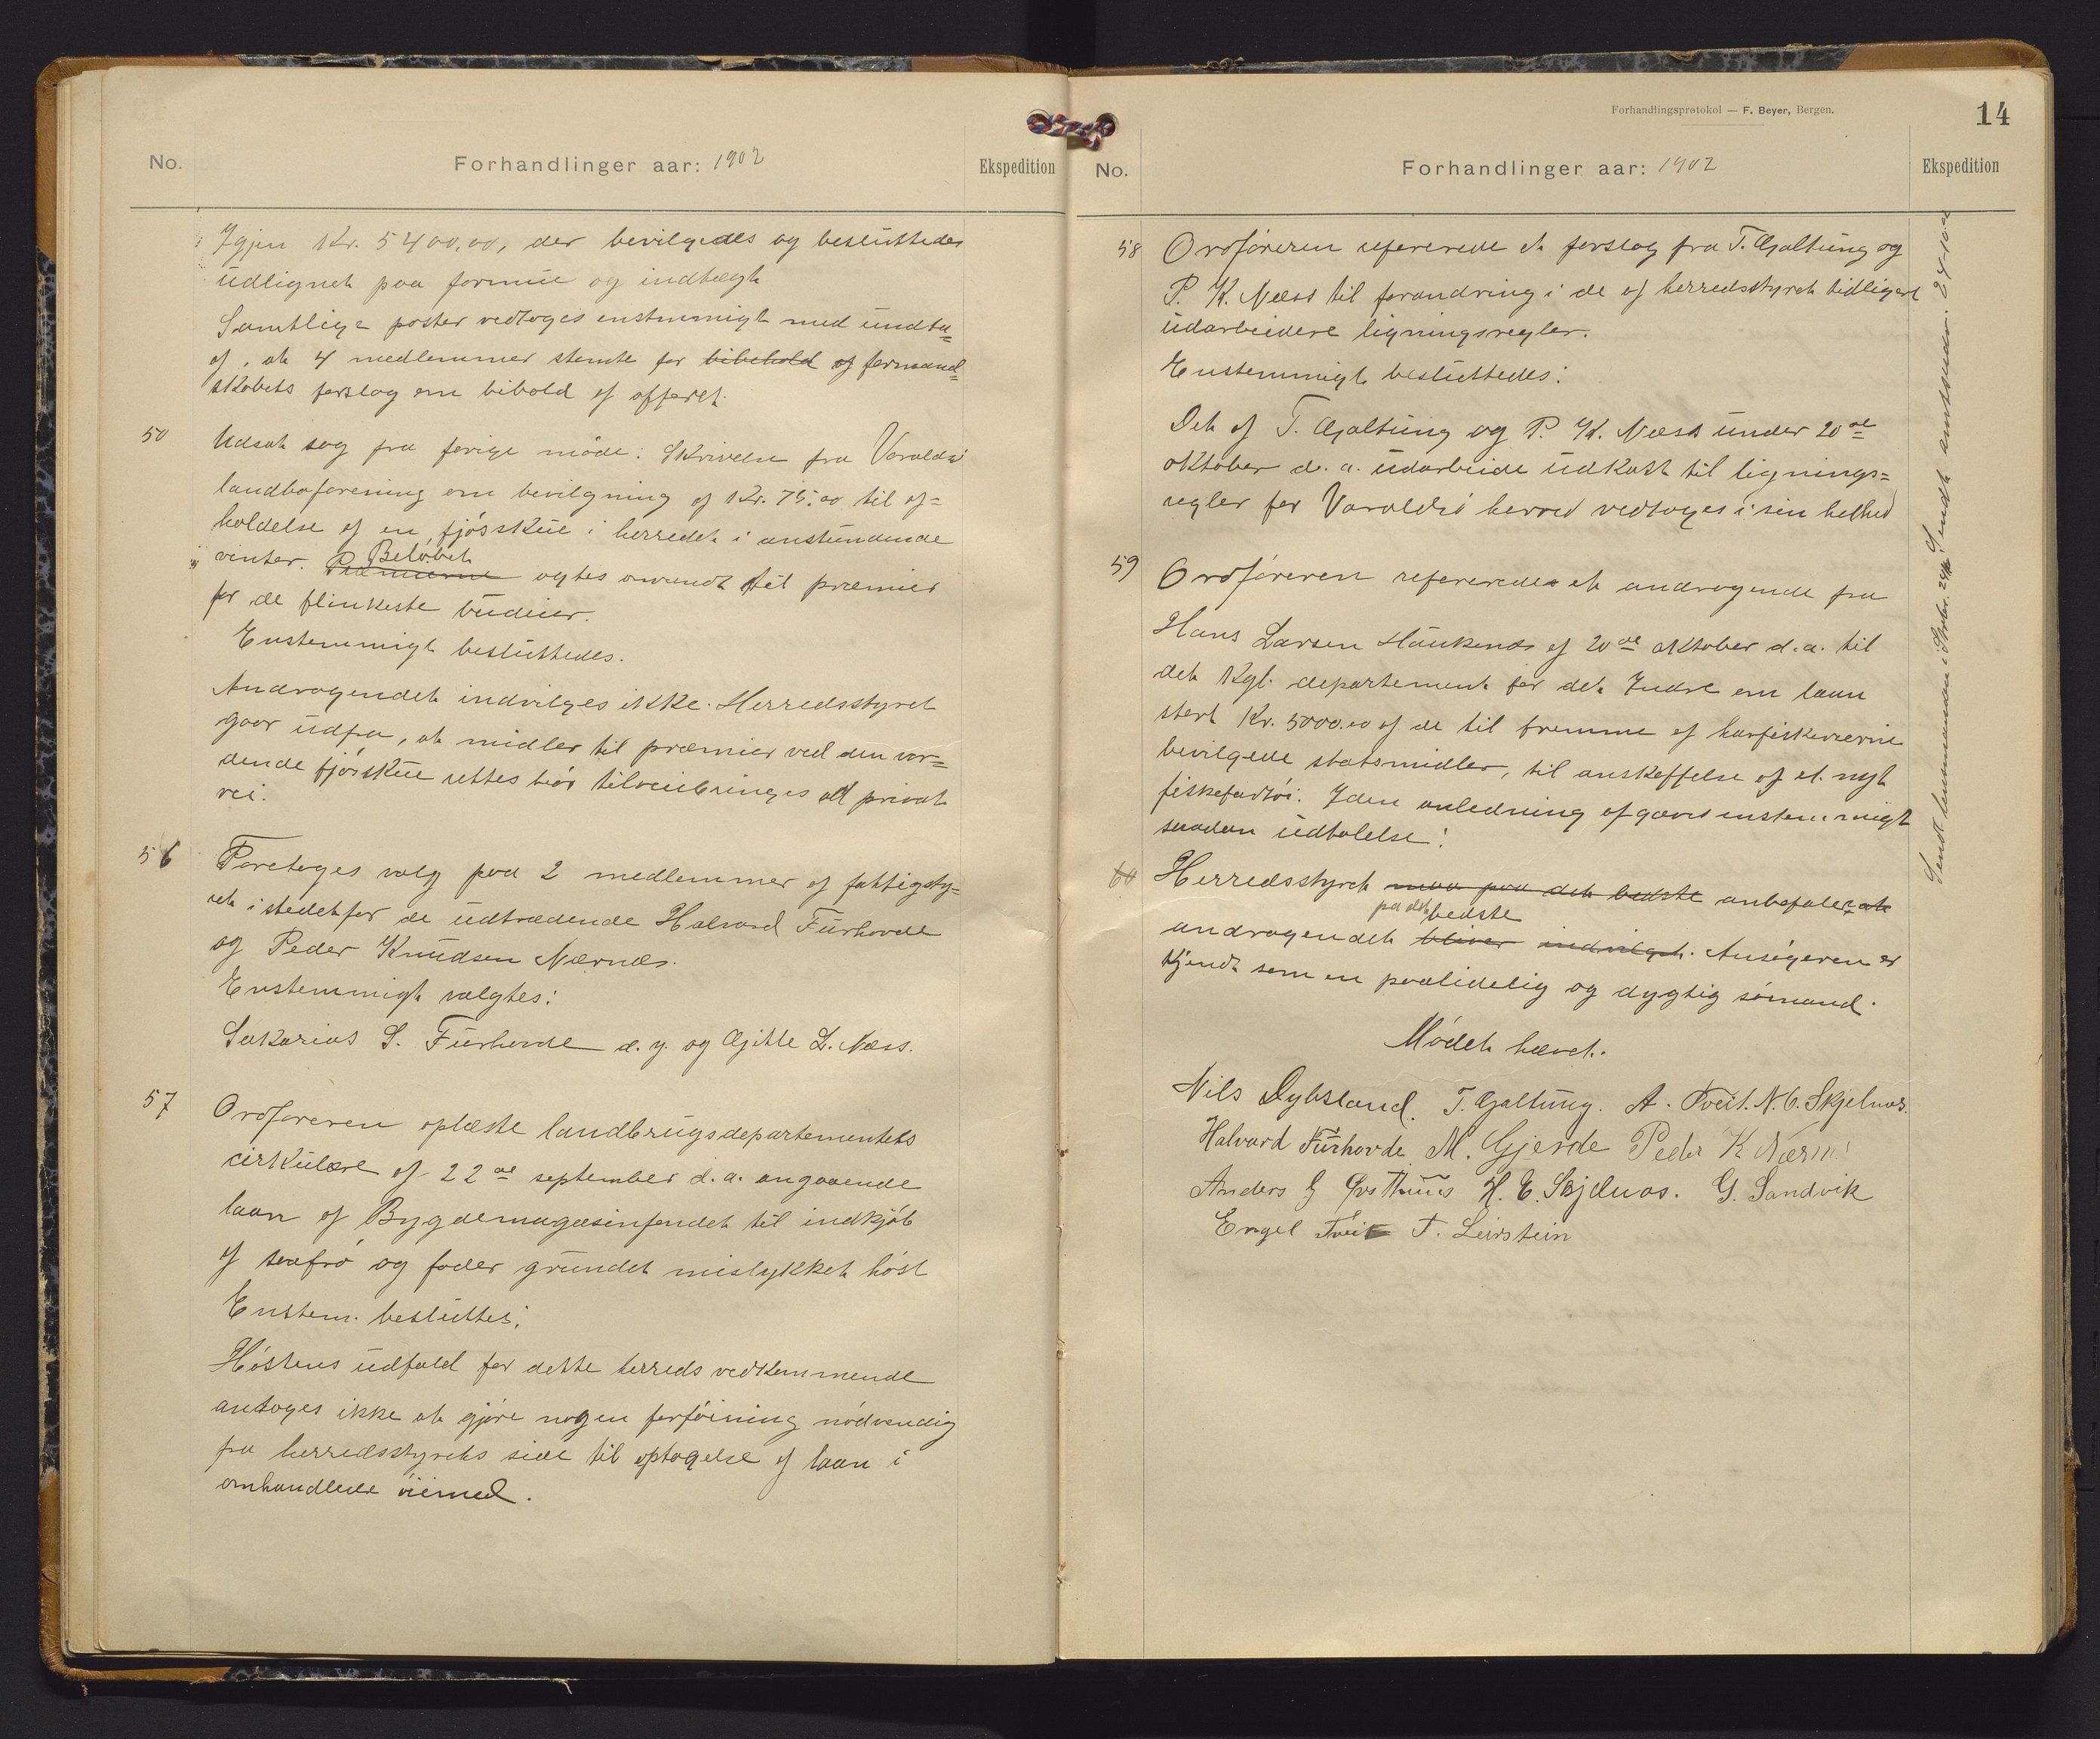 No.
Forhandlinger aar: 1902
Ekspedition
Igjen Kr. 5400,00, der bevilgedes og besluttedes
udlignet paa formue og indtægt
Samtlige poster vedtoges enstemmigt med undta-
af, at 4 medlemmer stemte for bibehold af formand-
skabets forslag om bibold af offeret.
50
Udsat sag fra forige møde: Skrivelse fra Varaldsø
landboforening om bevilgning af Kr. 75.00 til af-
holdelse af en fjøsskue i herredet i anstundende
Beløbet
vinter. Præmierne agtes anvendt til præmier
for de flinkeste budeier.
Enstemmigt besluttedes.
Andragendet indvilges ikke. Herredsstyret
gaar udfra, at midler til præmier ved den vor-
dende fjøsskue rettest bør tilveiebringes ad privat
vei.
56
Foretoges valg paa 2 medlemmer af fattigsty-
ret istedetfor de udtrædende Halvard Furhovde
og Peder Knudsen Nærnæs.
Enstemmigt valgtes:
Sakarias S. Furhovde d. y. og Gitle L. Næss.
57
Ordføreren oplæste landbrugsdepartementets
cirkulære af 22de september d. a. angaaende
laan af Bygdemagasinfondet til indkjøb
af saafrø og foder grundet mislykket høst
Enstem. besluttes:
Høstens udfald for dette herreds vedkommende
antages ikke at gjøre nogen forføining nødvendig
fra herredsstyrets side til optagelse af laan i
omhandlede øiemed.
Forhandlingsprotokol — F. Beyer, Bergen.
14
No.
Forhandlinger aar: 1902
Ekspedition
58
Ordføreren refererede et forslag fra T. Gjaltung og
P. K. Næss til forandring i de af herredsstyret tidligere
udarbeidere ligningsregler.
Enstemmigt besluttedes:
Det af T. Gjaltung og P. K. Næss under 20de
oktober d. a. udarbeide udkast til lignings-
regler for Varaldsø herred vedtoges i sin helhed
59
Ordføreren refererede et andragende fra
Hans Larsen Haukenæs af 20de oktober d. a. til
det Kgl. departement for det Indre om laan
stort Kr. 5000.00 af de til fremme af havfiskerierne
bevilgede statsmidler, til anskaffelse af et nyt
fiskefartøi. I den anledning afgaves enstemmigt
saadan udtalelse:
60
Herredsstyret maa paa det bedste anbefaler at
paa det bedste
andragendet bliver indvilget. Ansøgeren er
kjendt som en paalidelig og dygtig sømand.
Mødet hævet.
Nils Dybsland. T. Gjaltung. A. Tveit. N. C. Skjelnæs.
Halvard Furhovde M. Gjerde Peder K Nærnes
Anders G Østhuus H. E. Skjelnæs. G. Sandvik
Engel Tveit T. Leirstein
Sendt lensmanden i Strbr. 24/10 Sendt amtsmn. 24-10-02